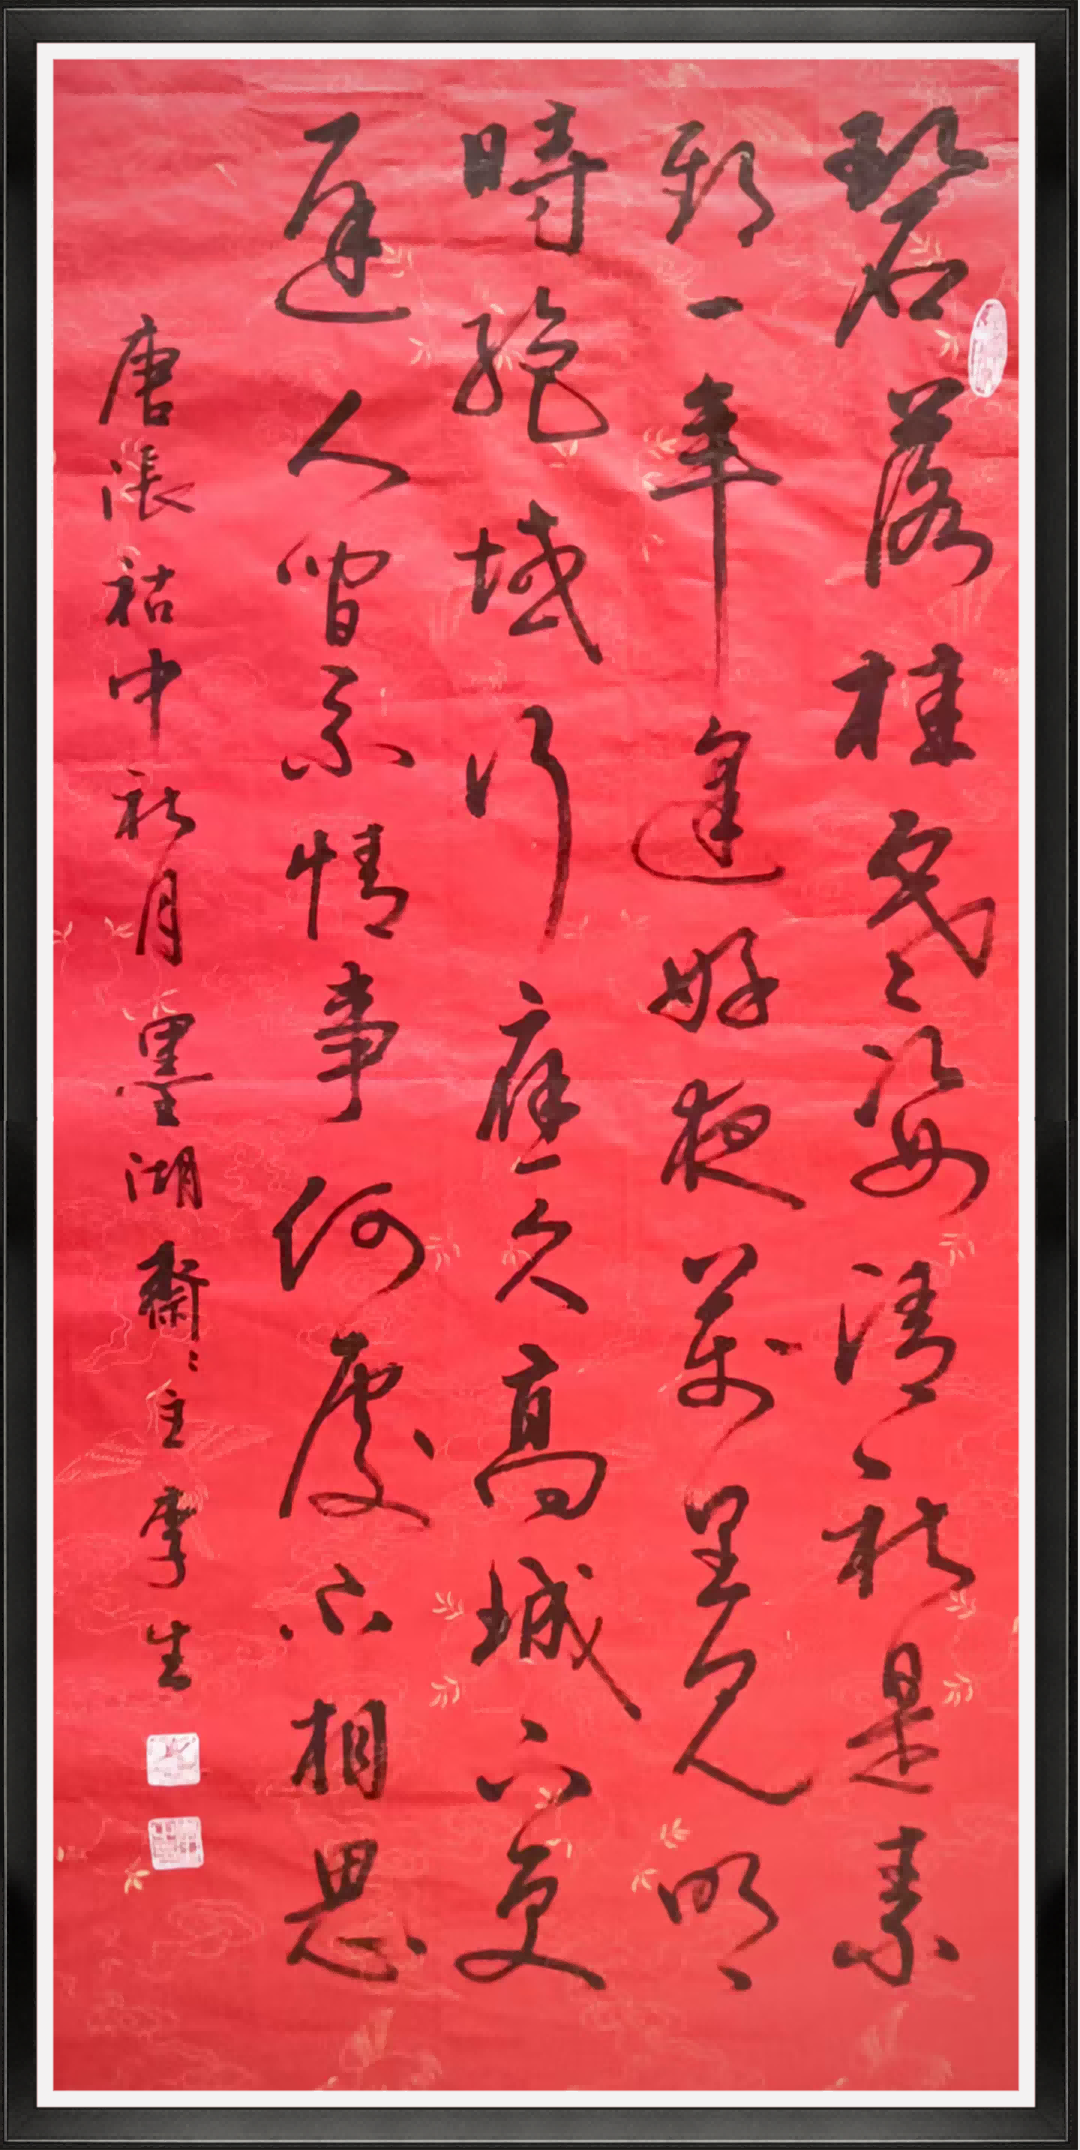 碧落桂含姿清秋是素
期一年逢好夜萬里見明
時絶域行應久高城下更
遲人間系情事何處不相思
唐張祜中秋月墨湖齋主李生